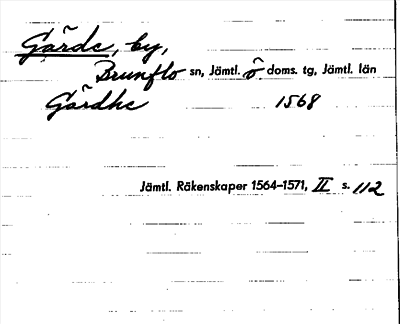 Gãrde, by,
Brunflo sn, Jämtl. ö. doms. tg, Jämtl. län
Gãrdhe 1568
Jämtl. Räkenskaper 1564–1571, II s. 112